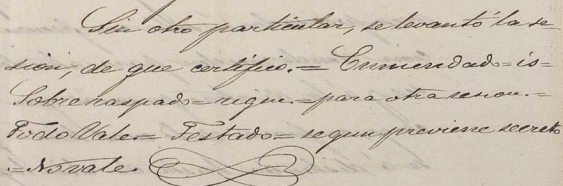 Sin otro particular, se levantó la se-
sion, de que certifico.= Enmendado=is=
Sobre raspado=rique.=para otra sesion.=
Todo Vale.= Testado= segun previene secreto
=No vale.